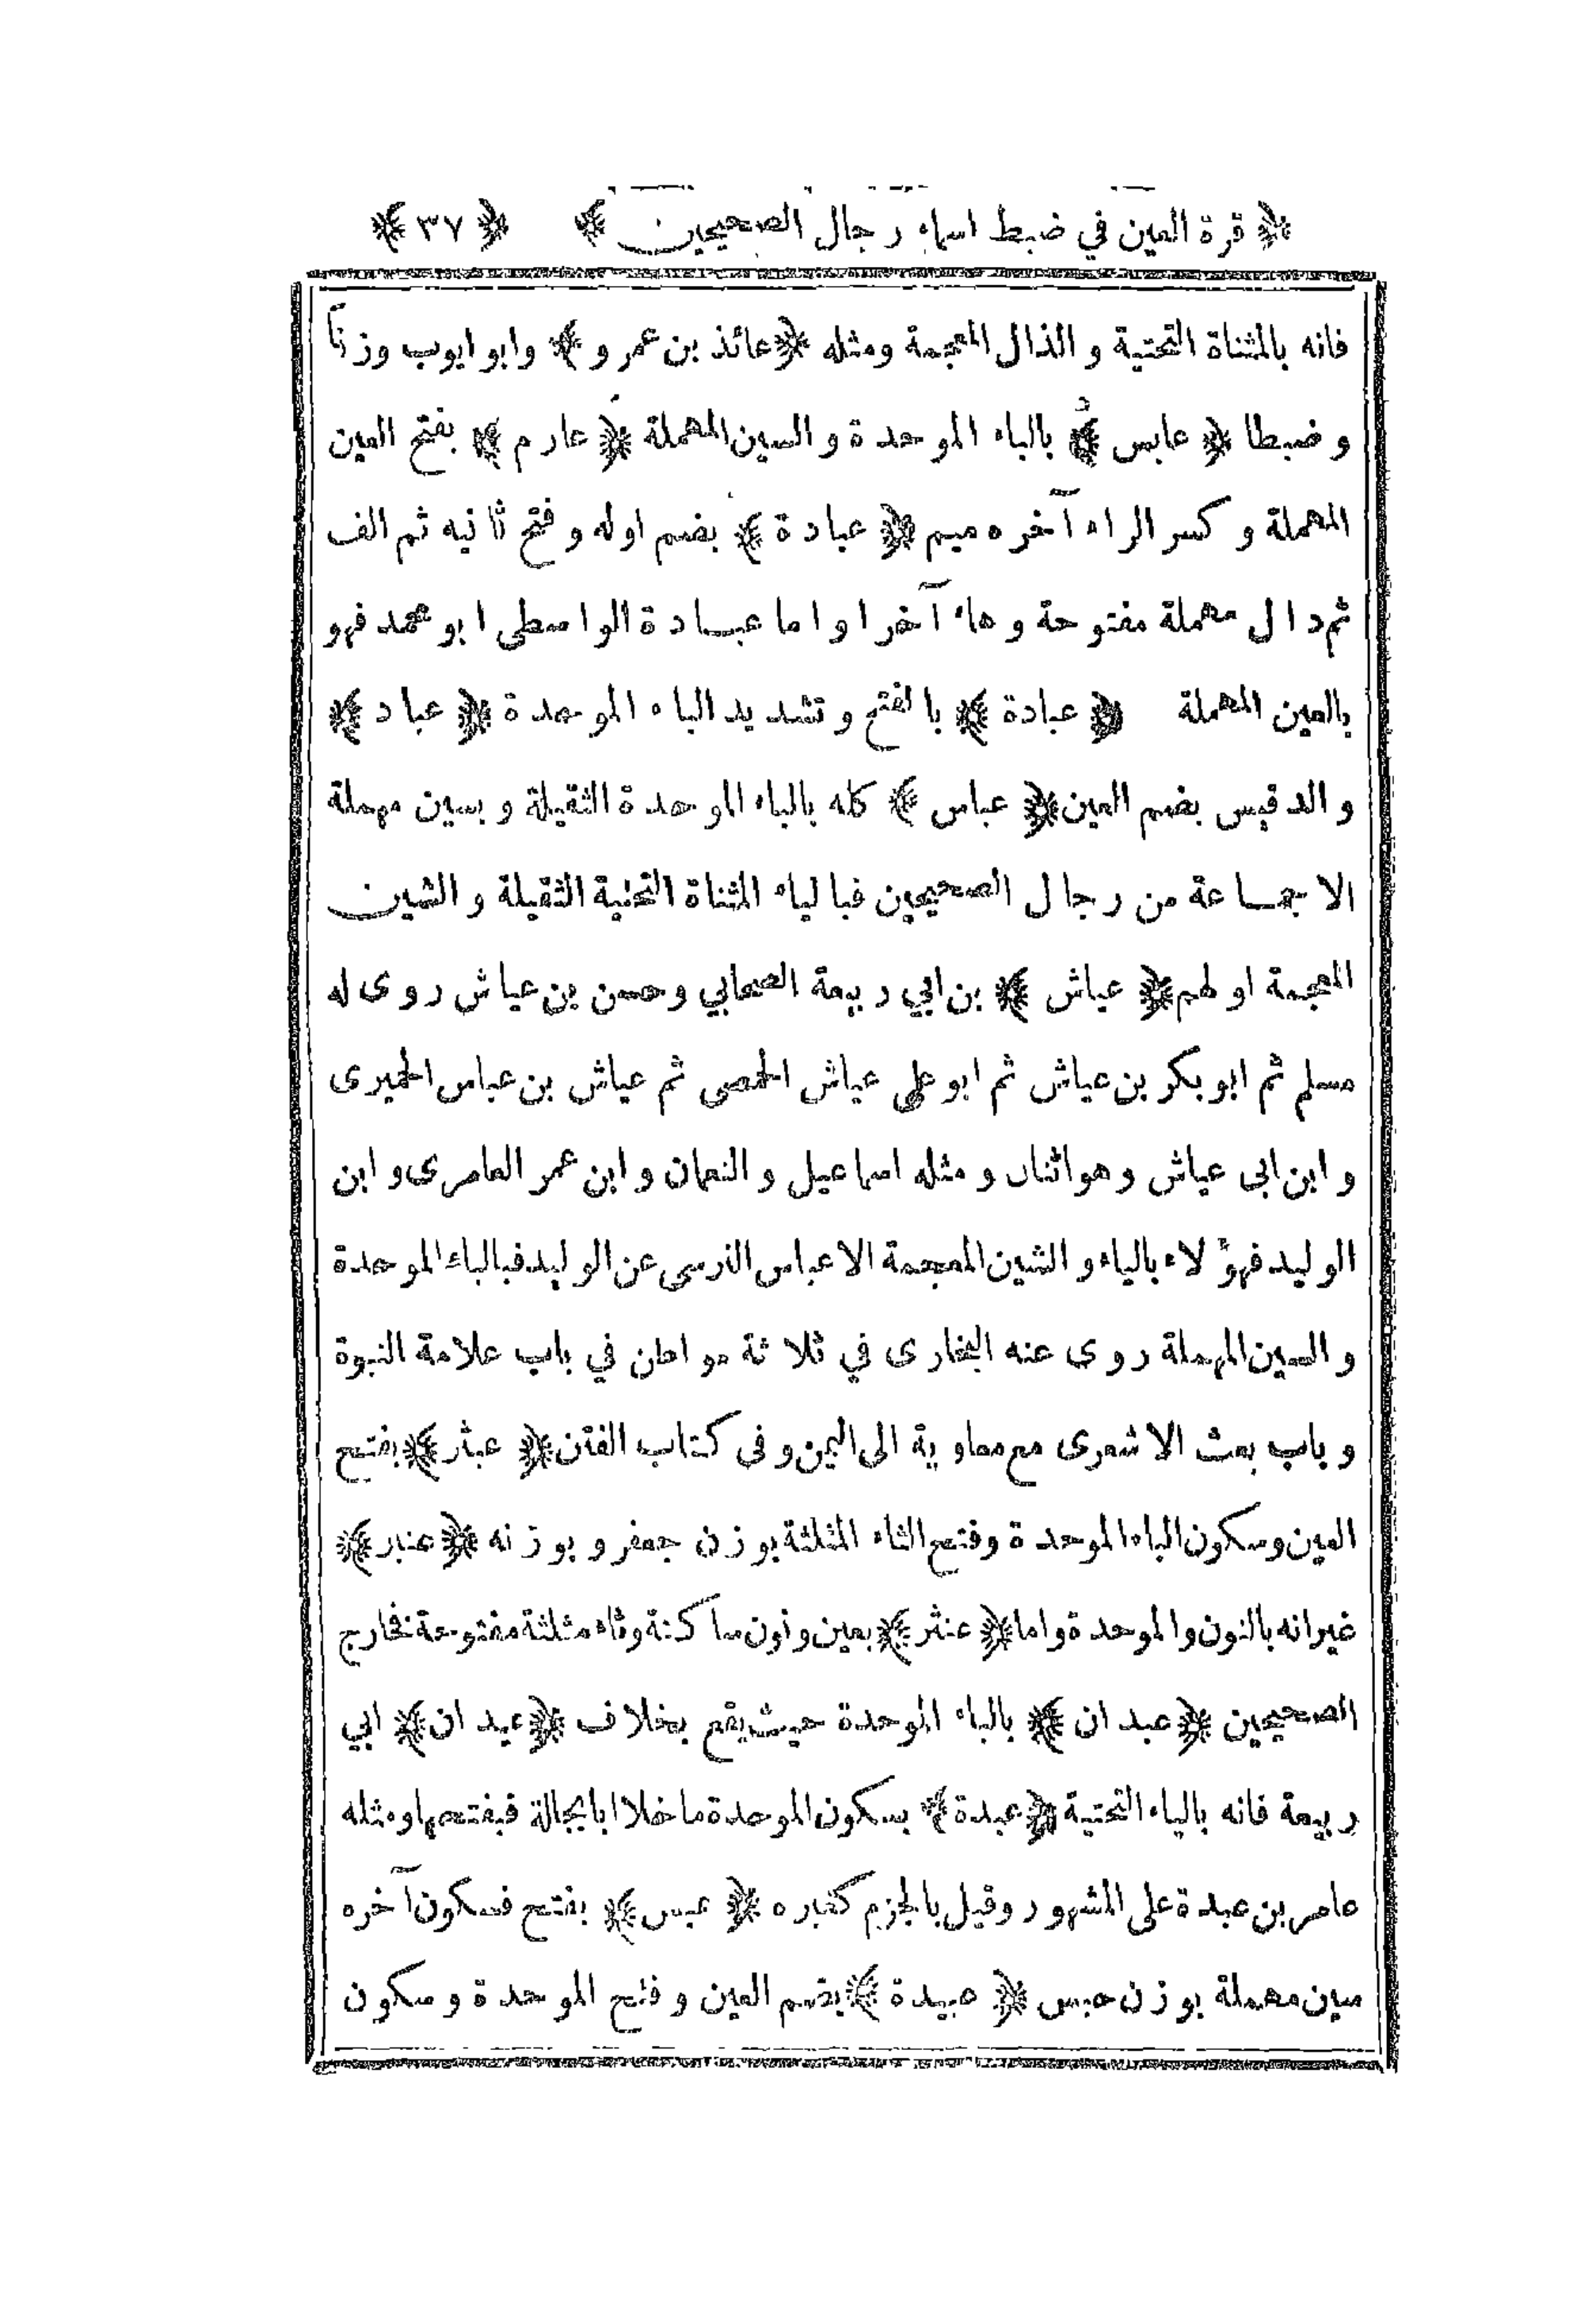 ﴿ قرة العين في ضبط اسماء رجال الصحيحين ﴾ ﴿ ٣٧ ﴾
فانه بالمثناة التحتية والذال المعجمة ومثله ﴿ عائذ بن عمرو ﴾ وابو ايوب وزناً
وضبطا ﴿ عابس ﴾ بالباء الموحدة والسين المهملة ﴿ عارم ﴾ بفتح العين
المهملة وكسر الراء آخره ميم ﴿ عبادة ﴾ بضم اوله وفتح ثانيه ثم الف
ثم دال مهملة مفتوحة وهاء آخرا واما عبادة الواسطى ابو محمد فهو
بالعين المهملة ﴿ عبادة ﴾ بالفتح وتشديد الباء الموحدة ﴿ عباد ﴾
والد قيس بضم العين ﴿ عباس ﴾ كله بالباء الموحدة الثقيلة وبسين مهملة
الا جماعة من رجال الصحيحين فبالياء المثناة التحتية الثقيلة والشين
المعجمة اولهم ﴿ عياش ﴾ بن ابي ربيعة الصحابي وحسن بن عياش روى له
مسلم ثم ابو بكر بن عياش ثم ابو على عياش الحمصى ثم عياش بن عباس الحميرى
وابن ابى عياش وهو اثنان ومثله اسماعيل والنعمان وابن عمر العامرى وابن
الوليد فهؤلاء بالياء والشين المعجمة الا عباس النرسى عن الوليد فبالباء الموحدة
والسين المهملة روى عنه البخارى في ثلاثة مواطن في باب علامة النبوة
وباب بعث الاشعرى مع معاوية الى اليمن وفى كتاب الفتن ﴿ عبثر ﴾ بفتح
العين وسكون الباء الموحدة وفتح الثاء المثلثة بوزن جعفر وبوزنه ﴿ عنبر ﴾
غير انه بالنون والموحدة واما ﴿ عنثر ﴾ بعين ونون ساكنة وثاء مثلثة مفتوحة فخارج
الصحيحين ﴿ عبدان ﴾ بالباء الموحدة حيث يقع بخلاف ﴿ عيدان ﴾ ابي
ربيعة فانه بالياء التحتية ﴿ عبدة ﴾ بسكون الموحدة ما خلا ابا بجالة فبفتحها ومثله
عامر بن عبدة على المشهور وقيل بالجزم كغيره ﴿ عبس ﴾ بفتح فسكون آخره
سين مهملة بوزن حبس ﴿ عبيدة ﴾ بضم العين وفتح الموحدة وسكون